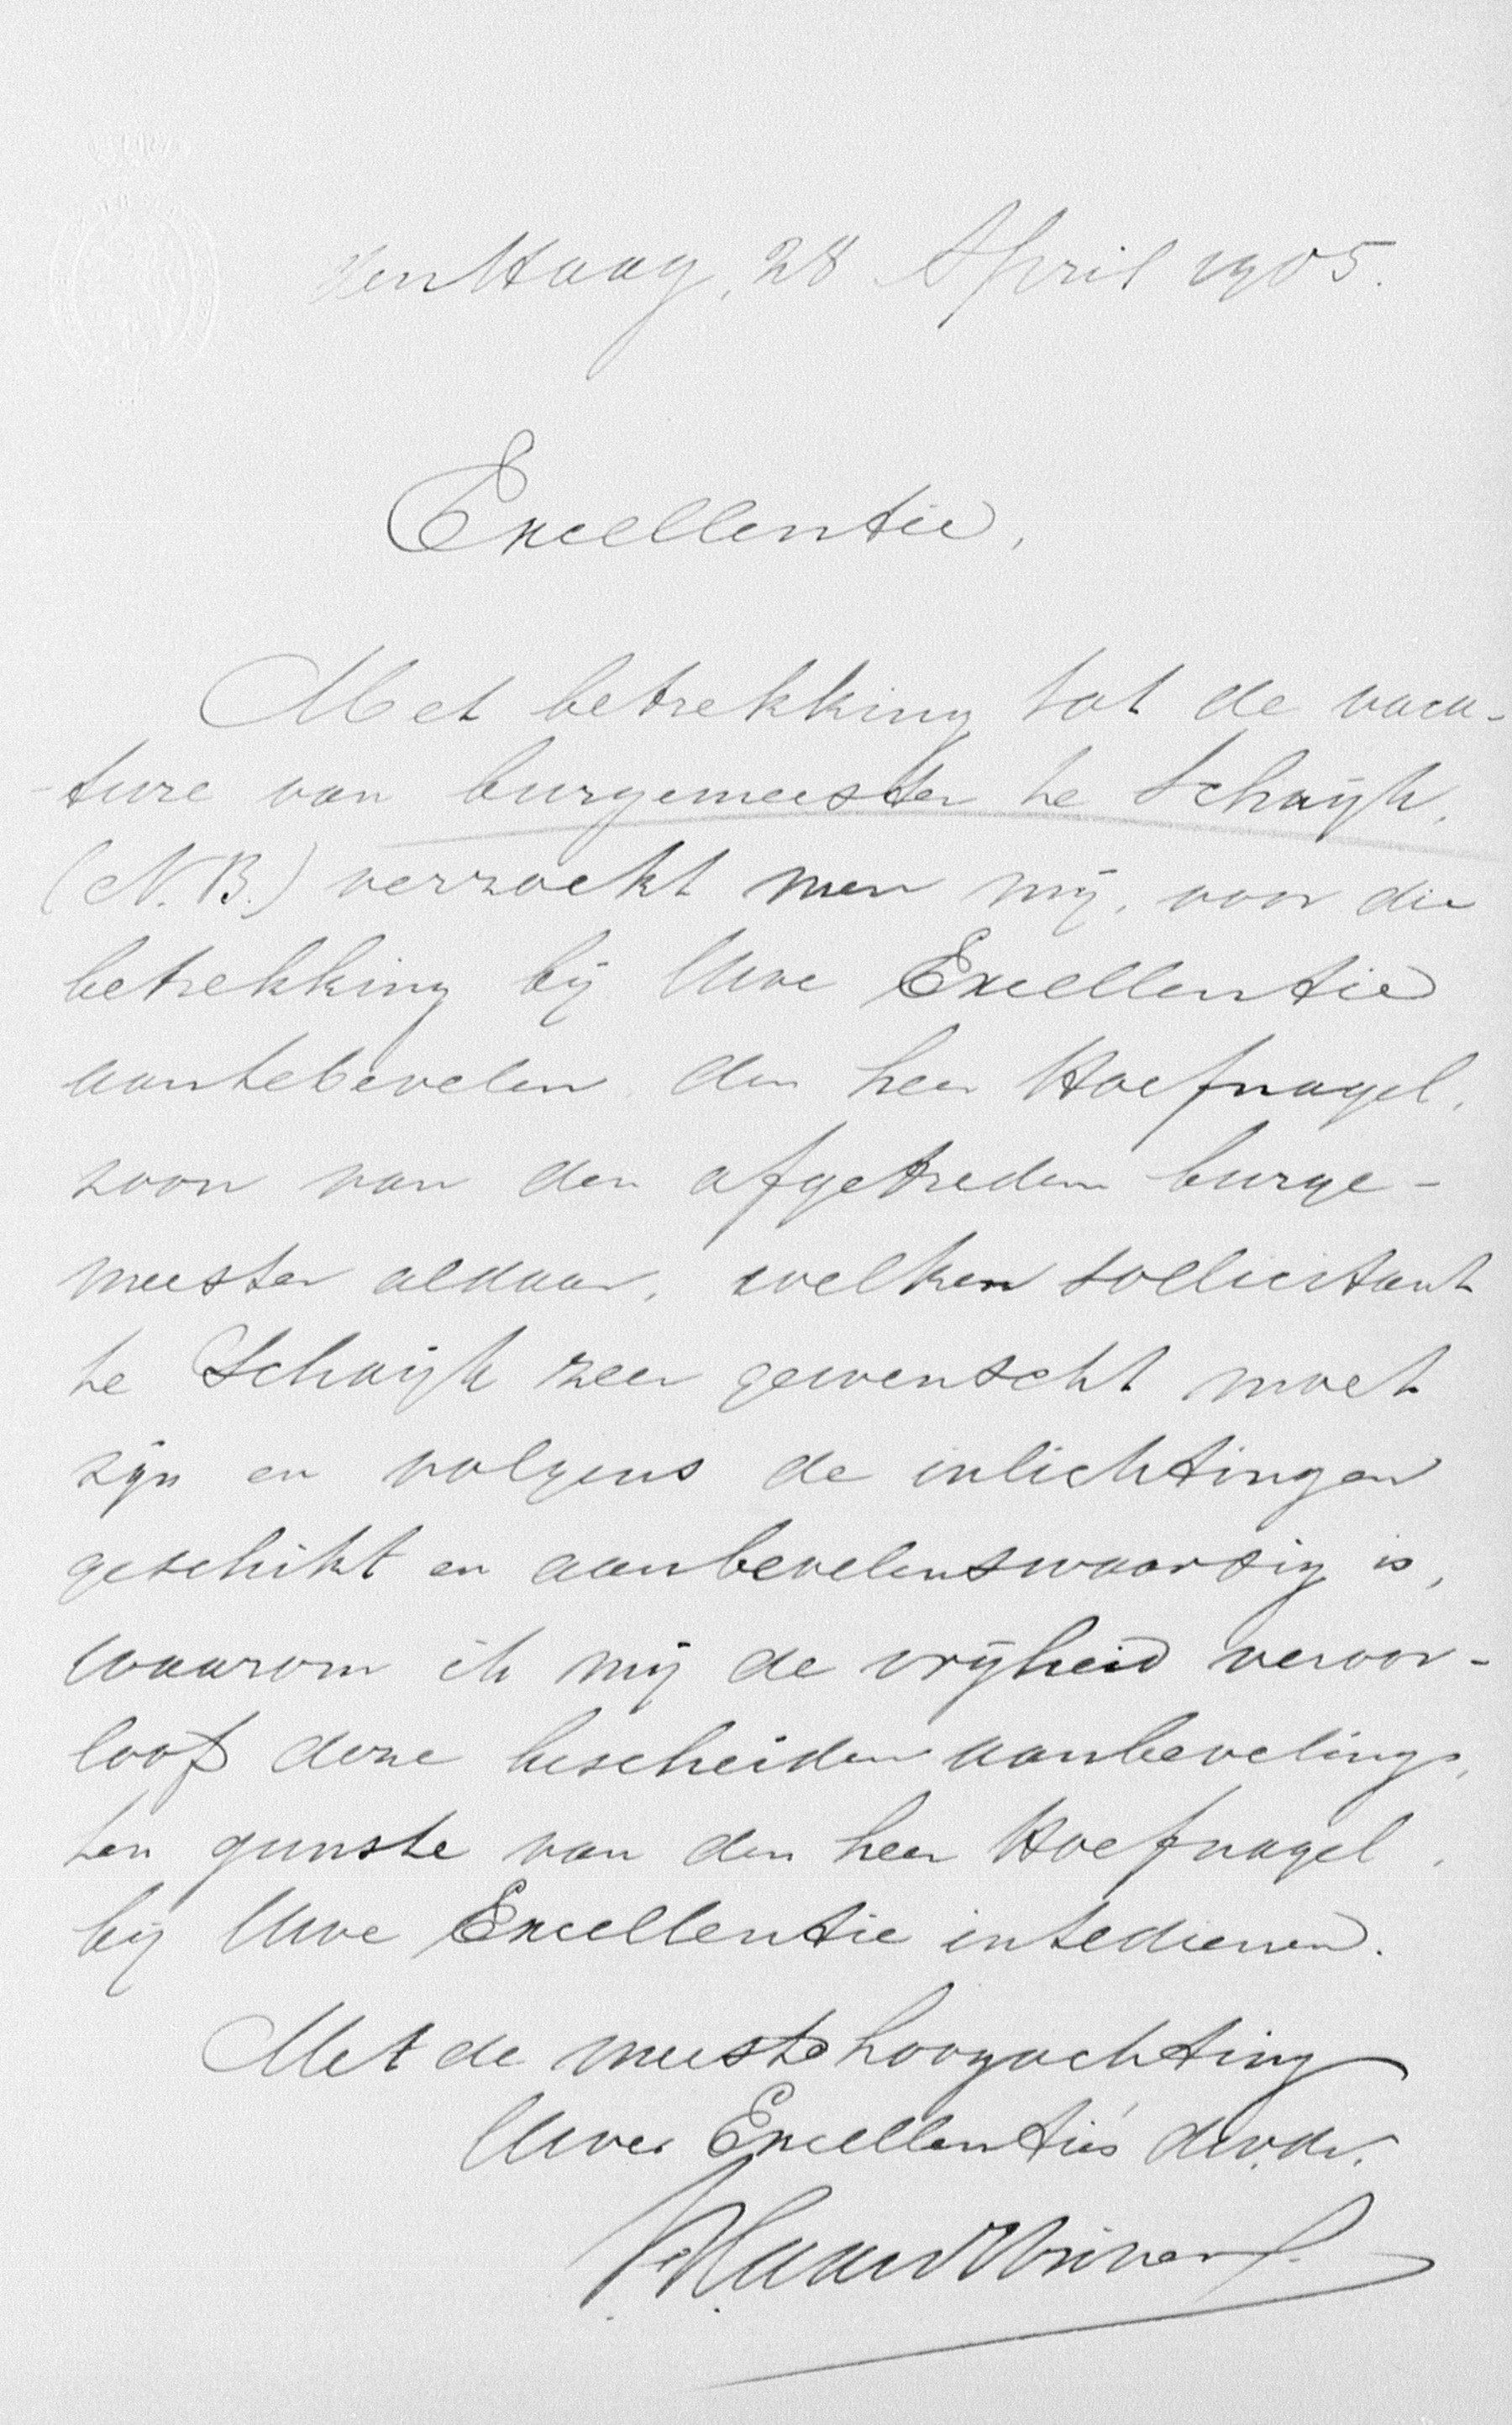 den Haag, 28 April 1905.
Excellentie,
Met betrekking tot de vaca-
-ture van burgemeester te Schaijk,
(N.B.) verzoekt men mij, voor die
betrekking bij Uwe Excellentie
aantebevelen den heer Hoefnagel,
zoon van den afgetreden burge-
meester aldaar, welken sollicitant
te Schaijk zeer gewenscht moet
zijn en volgens de inlichtingen
geschikt en aanbevelenswaardig is,
waarom ik mij de vrijheid veroor-
loof deze bescheiden aanbeveling,
ten gunste van den heer Hoefnagel,
bij Uwe Excellentie intedienen.
Met de meeste hoogachting
Uwer Excellentie's dw.dr.